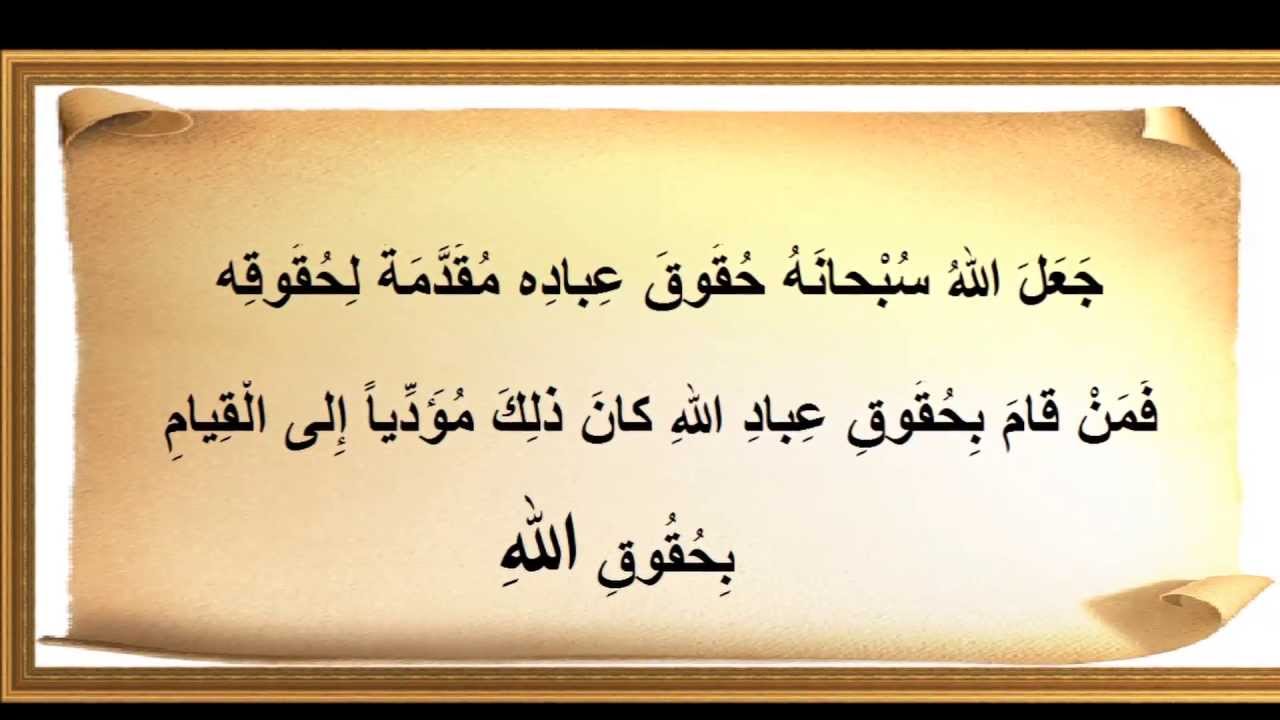 جَعَلَ اللهُ سُبْحانَهُ حُقَوقَ عِبادِه مُقَدَّمَةً لِحُقَوقِه
فَمَنْ قامَ بِحُقَوقِ عِبادِ اللهِ كانَ ذلِكَ مُؤَدِّياً إِلى الْقِيامِ
بِحُقُوقِ اللهِ